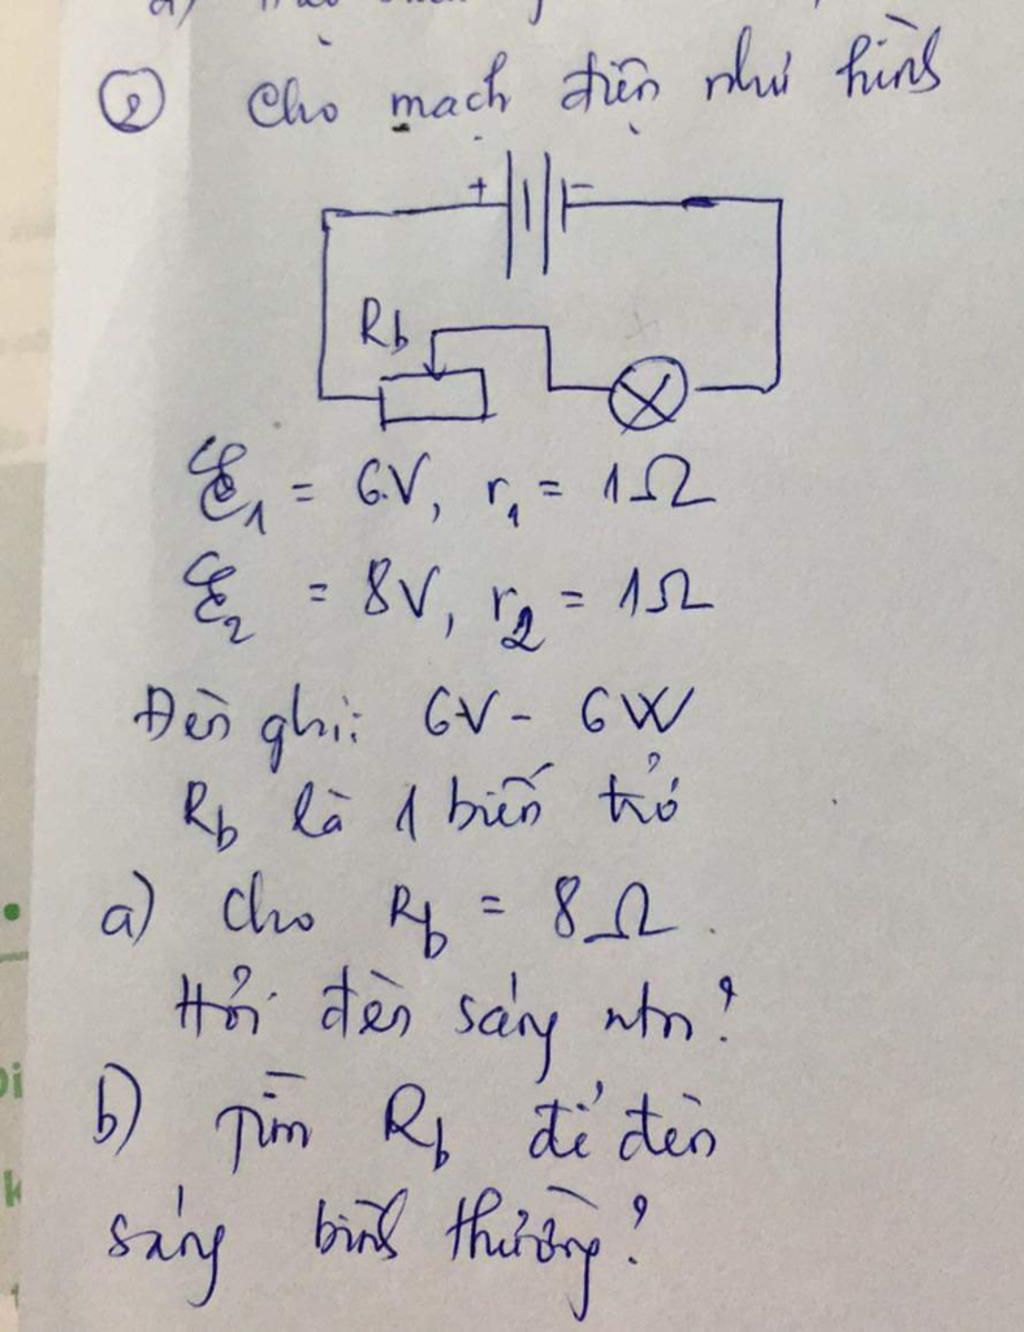 ② Cho mạch điện như hình
+ -
Rb
ℰ1 = 6V, r1 = 1Ω
ℰ2 = 8V, r2 = 1Ω
Đèn ghi: 6V - 6W
Rb là 1 biến trở
a) Cho Rb = 8Ω.
Hỏi đèn sáng ntn?
b) Tìm Rb để đèn
sáng bình thường?